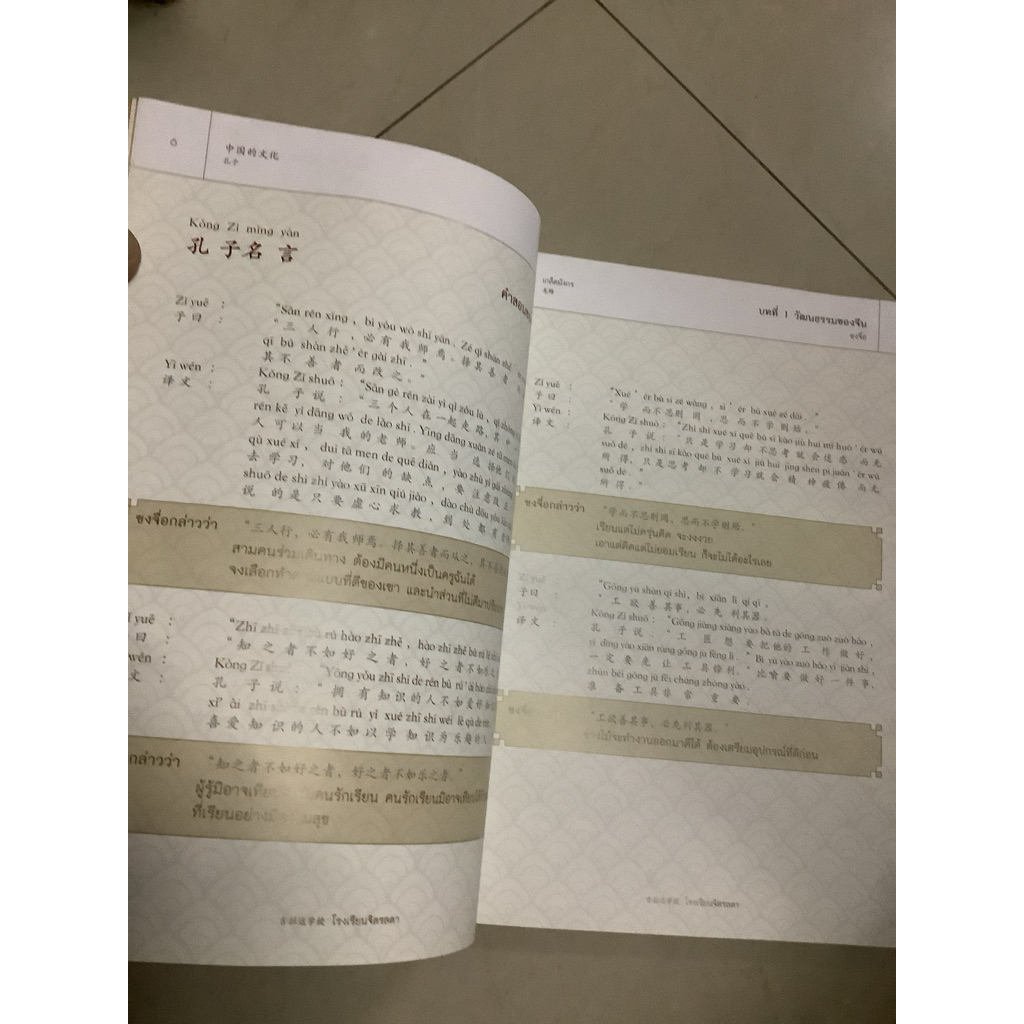 ๖
中国的文化
孔子
Kǒng Zǐ míng yán
孔子名言
คำสอน
Zǐ yuē : "Sān rén xíng , bì yǒu wǒ shī yān . Zé qí shàn zhě
子曰 : "三人行,必有我师焉。择其善者
qí bù shàn zhě ' ér gǎi zhī . "
其不善者而改之。"
Yì wén : Kǒng Zǐ shuō : "Sān gè rén zài yì qǐ zǒu lù ,
译文 : 孔子说:"三个人在一起走路,其中
rén kě yǐ dāng wǒ de lǎo shī . Yīng dāng xuǎn zé tā men
人可以当我的老师。应当选择他们
qù xué xí , duì tā men de quē diǎn , yào zhù yì gǎi
去学习,对他们的缺点,要注意改
shuō de shì zhǐ yào xū xīn qiú jiào , dào chù dōu yǒu
说的是只要虚心求教,到处都有
ขงจื่อกล่าวว่า "三人行,必有我师焉。择其善者而从之,其不善
สามคนร่วมเดินทาง ต้องมีคนหนึ่งเป็นครูฉันได้
จงเลือกทำตามแบบที่ดีของเขา และนำส่วนที่ไม่ดีมา
yuē : "Zhī zhī bù rú hào zhī zhě , hào zhī zhě bù rú
曰 : "知之者不如好之者,好之者不如乐之
wén : Kǒng Zǐ "Yōng yǒu zhī shi de rén bù rú
文 : 孔子说:"拥有知识的人不如爱好
xǐ ài zhī rén bù rú yǐ xué zhī shi wéi lè qù de
喜爱知识的人不如以学知识为乐趣的人
กล่าวว่า "知之者不如好之者,好之者不如乐之者。"
ผู้รู้มิอาจเทียบ คนรักเรียน คนรักเรียนมิอาจเทียบ
ที่เรียนอย่างมี สุข
吉拉达学校 โรงเรียนจิตรลดา
เกล็ดมังกร
龙鳞
บทที่ 1 วัฒนธรรมของจีน
ขงจื่อ
Zǐ yuē : "Xué ' ér bù sī zé wǎng , sī ' ér bù xué zé dài . "
子曰 : "学而不思则罔,思而不学则殆。"
Yì wén : Kǒng Zǐ shuō : "Zhǐ shì xué xí què bù sī kǎo jiù huì mí huò ' ér wú
译文 : 孔子说:"只是学习却不思考就会迷惑而无
suǒ dé , zhǐ shì sī kǎo què bù xué xí jiù huì jīng shén pí juàn ' ér wú
所得,只是思考却不学习就会精神疲倦而无
suǒ dé . "
所得。"
ขงจื่อกล่าวว่า "学而不思则罔,思而不学则殆。"
เรียนแต่ไม่ครุ่นคิด จะงงงวย
เอาแต่คิดแต่ไม่ยอมเรียน ก็จะไม่ได้อะไรเลย
Zǐ yuē : "Gōng yù shàn qí shì , bì xiān lì qí qì ,
子曰 : "工欲善其事,必先利其器。
Kǒng Zǐ shuō : "Gōng jiàng xiǎng yào bǎ tā de gōng zuò zuò hǎo ,
译文 : 孔子说:"工匠想要把他的工作做好,
yí dìng yào xiān ràng gōng jù fēng lì . " Bǐ yù yào zuò hǎo yí jiàn shì ,
一定要先让工具锋利。"比喻要做好一件事,
zhǔn bèi gōng jù fēi cháng zhòng yào .
准备工具非常重要。
"工欲善其事,必先利其器。"
ช่างไม้จะทำงานออกมาดีได้ ต้องเตรียมอุปกรณ์ที่ดีก่อน
吉拉达学校 โรงเรียนจิตรลดา